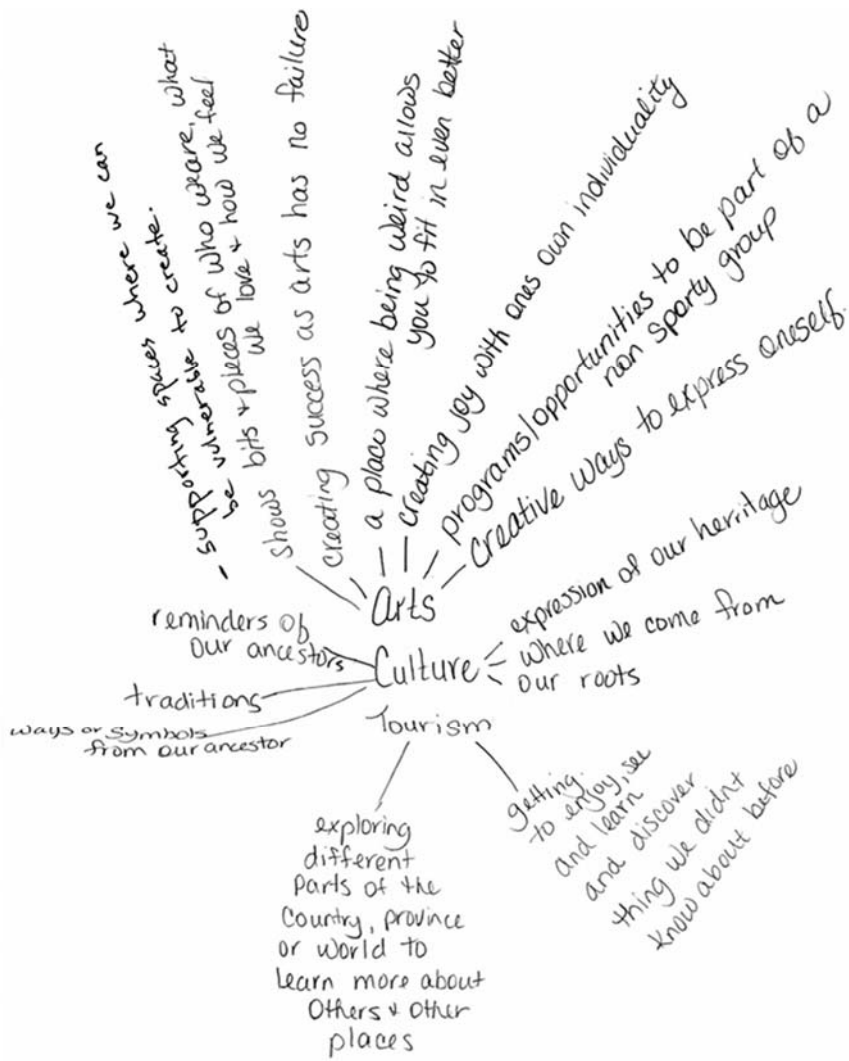 - supporting spaces where we can
be vulnerable to create.
shows bits + pieces of who we are, what
we love + how we feel
creating success as arts has no failure
a place where being weird allows
you to fit in even better
creating joy with ones own individuality
programs/opportunities to be part of a
non sporty group
creative ways to express oneself.
Arts
reminders of
our ancestors
traditions
ways or symbols
from our ancestor
Culture
expression of our herritage
where we come from
our roots
Tourism
exploring
different
parts of the
country, province
or world to
learn more about
others + other
places
getting
to enjoy, see
and learn
and discover
thing we didnt
know about before